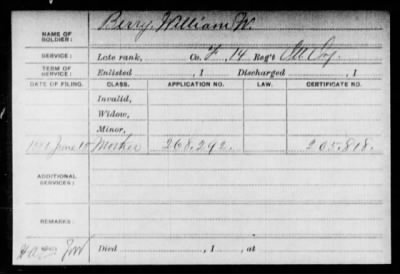 NAME OF SOLDIER: Berry, William W.
SERVICE: Late rank, Co. F, 14 Reg't Ill Inf.
TERM OF SERVICE: Enlisted , 1 Discharged , 1
DATE OF FILING. CLASS. APPLICATION NO. LAW. CERTIFICATE NO.
Invalid,
Widow,
Minor,
June Mother 268.292. 205.818.
ADDITIONAL SERVICES:
REMARKS:
Died , 1 , at